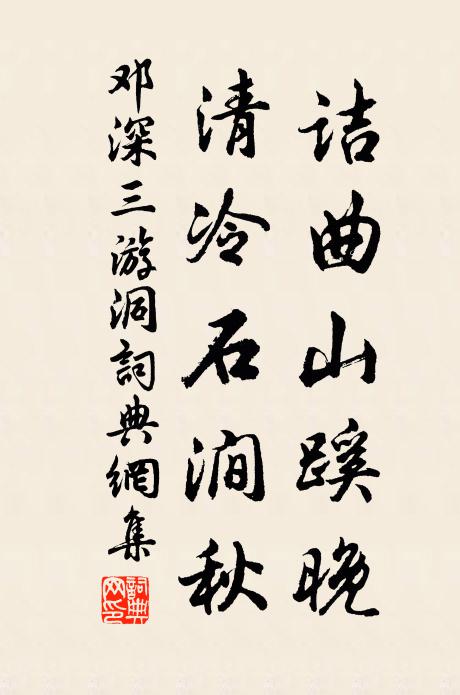 诘曲山蹊晚
清冷石涧秋
邓深三游洞詞典網集
詞典网印